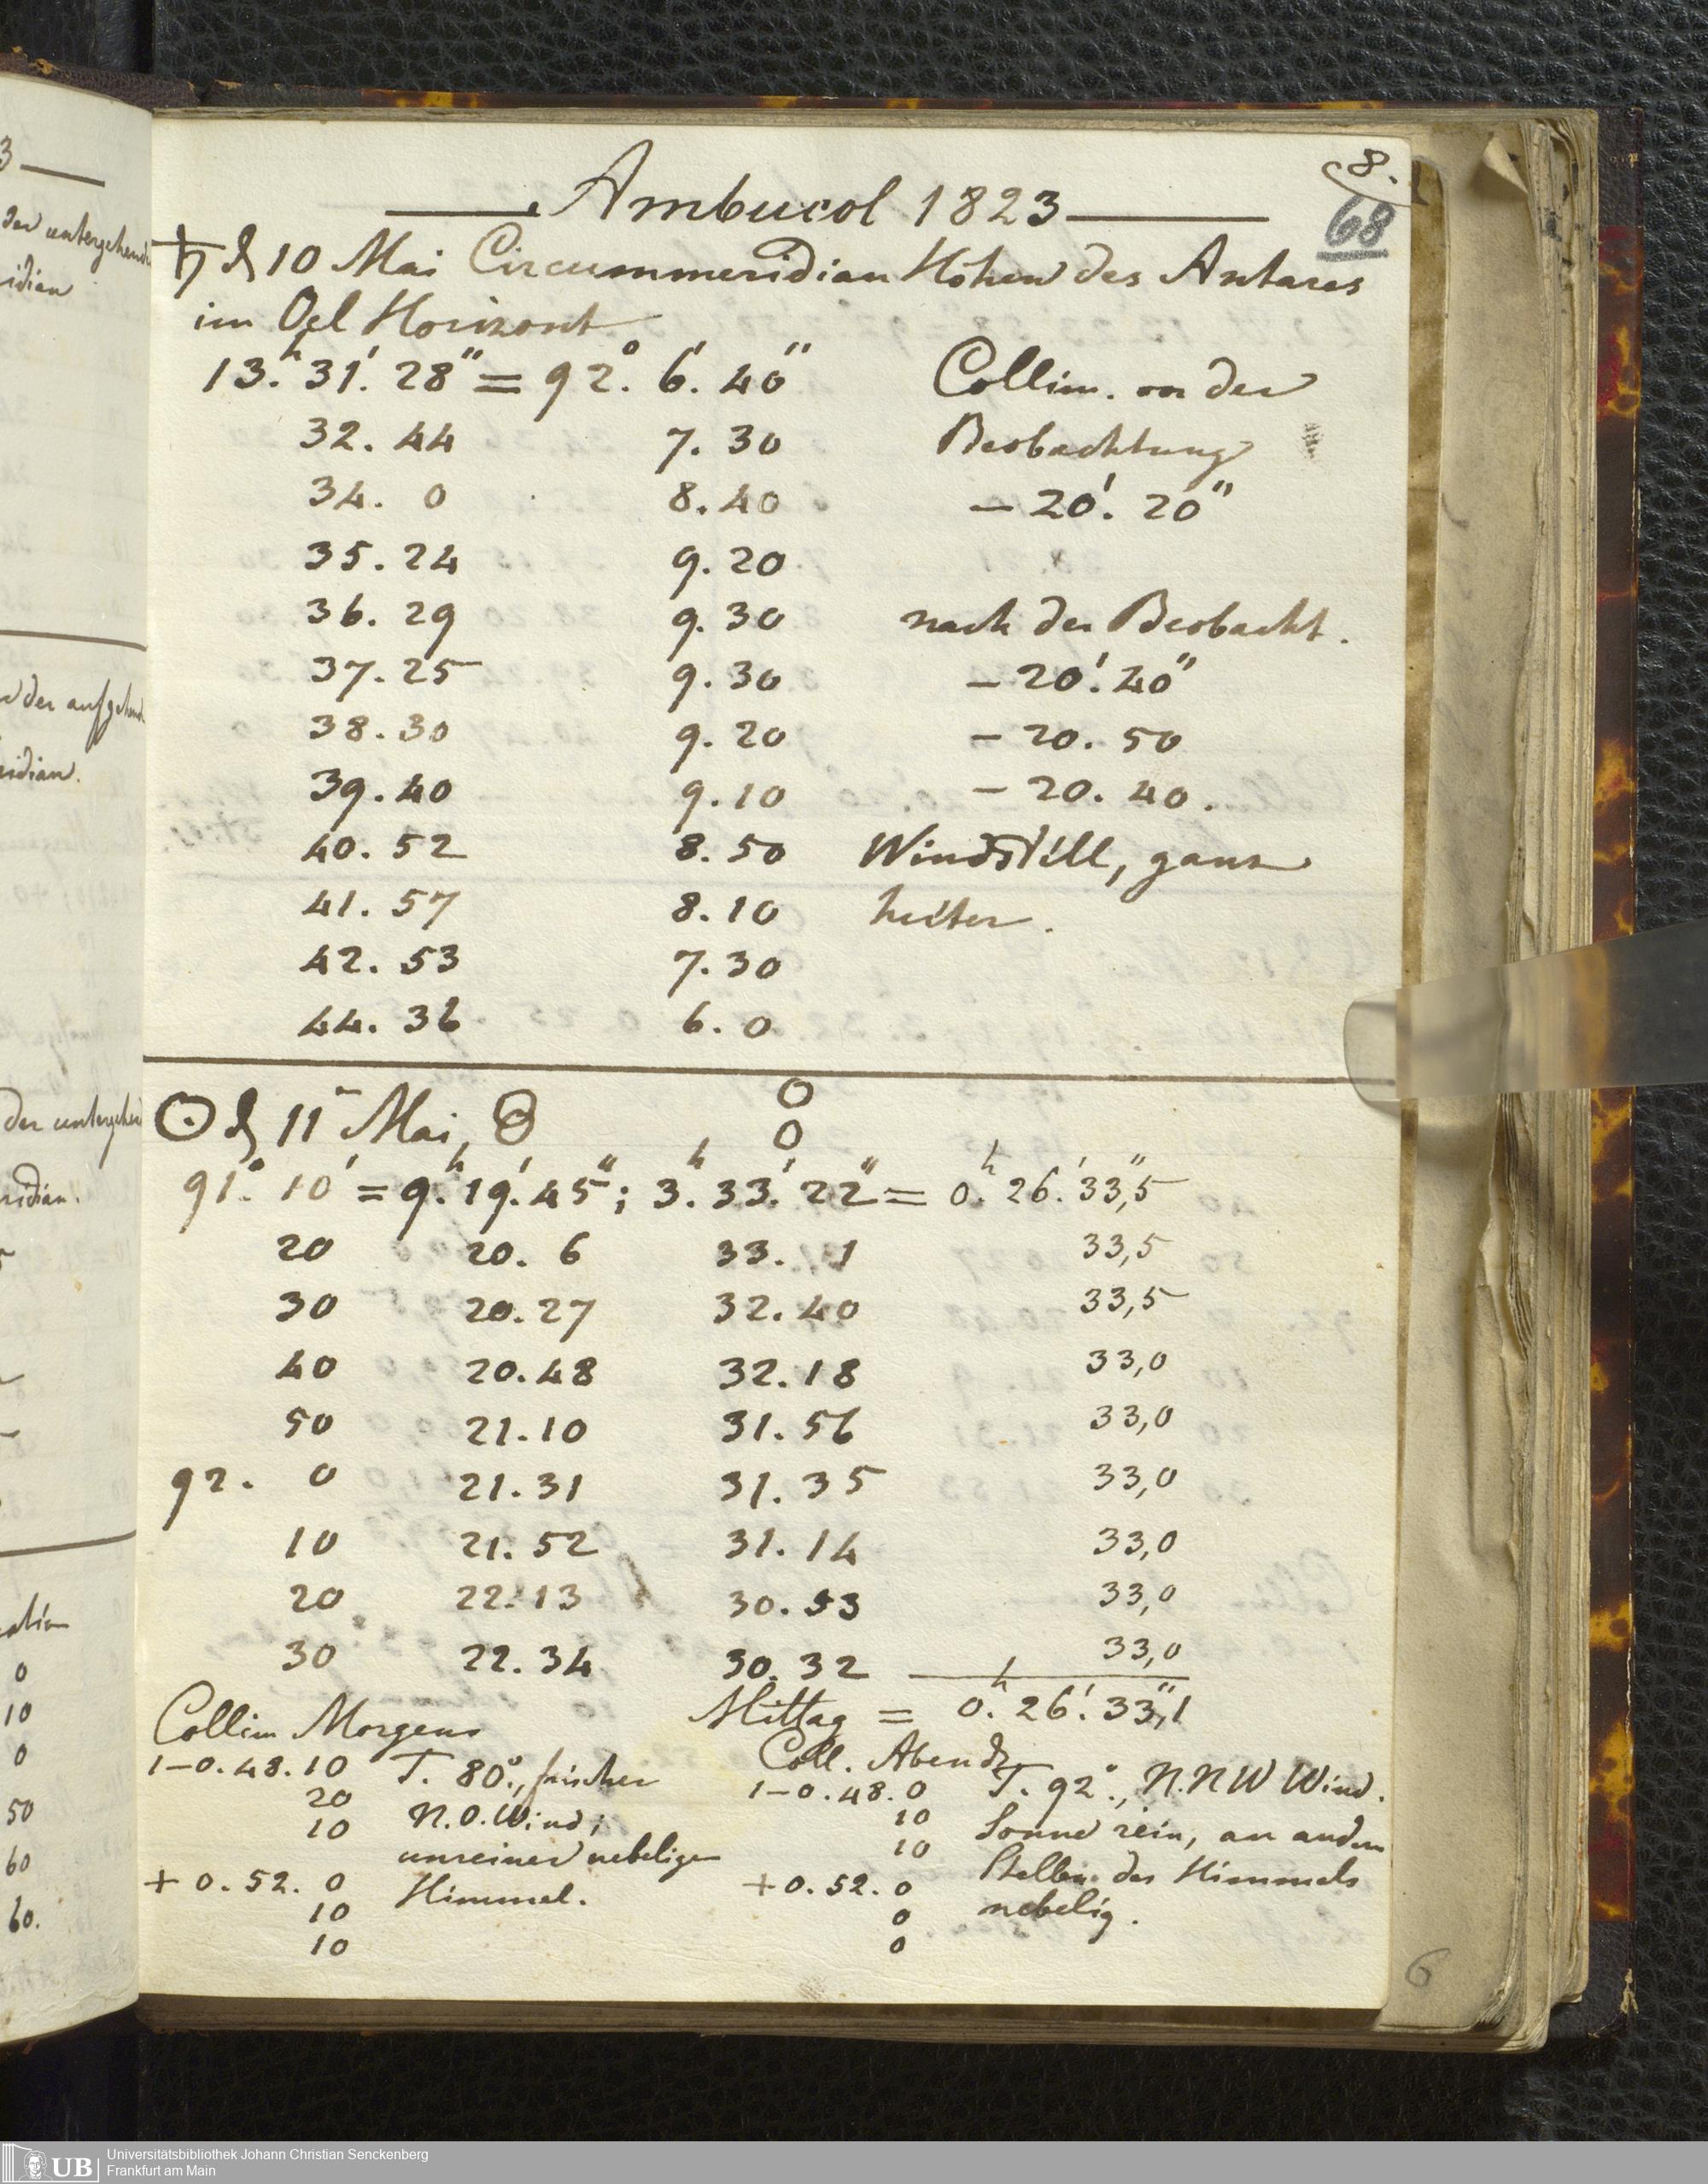 8.
68
Ambucol 1823
♄ d 10 Mai Circummeridian Höhen des Antares
im Oel Horizont
13.ʰ 31.′ 28″ = 92.° 6.′ 40″ Collim. vor der
32. 44 7. 30 Beobachtung
34. 0 8. 40 – 20′. 20″
35. 24 9. 20
36. 29 9. 30 nach der Beobacht.
37. 25 9. 30 – 20′. 40″
38. 30 9. 20 – 20. 50
39. 40 9. 10 – 20. 40.
40. 52 8. 50 Windstill, ganz
41. 57 8. 10 heiter.
42. 53 7. 30
44. 36 6. 0
☉ d 11 Mai,
91.° 10′ = 9.ʰ 19.′ 45″; 3.ʰ 33.′ 22″ = 0.ʰ 26.′ 33″,5
20 20. 6 33. 1 33,5
30 20. 27 32. 40 33,5
40 20. 48 32. 18 33,0
50 21. 10 31. 56 33,0
92. 0 21. 31 31. 35 33,0
10 21. 52 31. 14 33,0
20 22. 13 30. 53 33,0
30 22. 34 30. 32 33,0
Mittag = 0.ʰ 26.′ 33″,1
Collim Morgens
1–0. 48. 10 T. 80°., frischer
20
10 N. O. Wind;
unreiner nebeliger
+ 0. 52. 0 Himmel.
10
10
Coll. Abends
1–0. 48. 0 T. 92°., N.NW Wind.
10 Sonne rein, an andern
10
Stellen des Himmels
+ 0. 52. 0
0 nebelig.
0
6
UB
Universitätsbibliothek Johann Christian Senckenberg
Frankfurt am Main